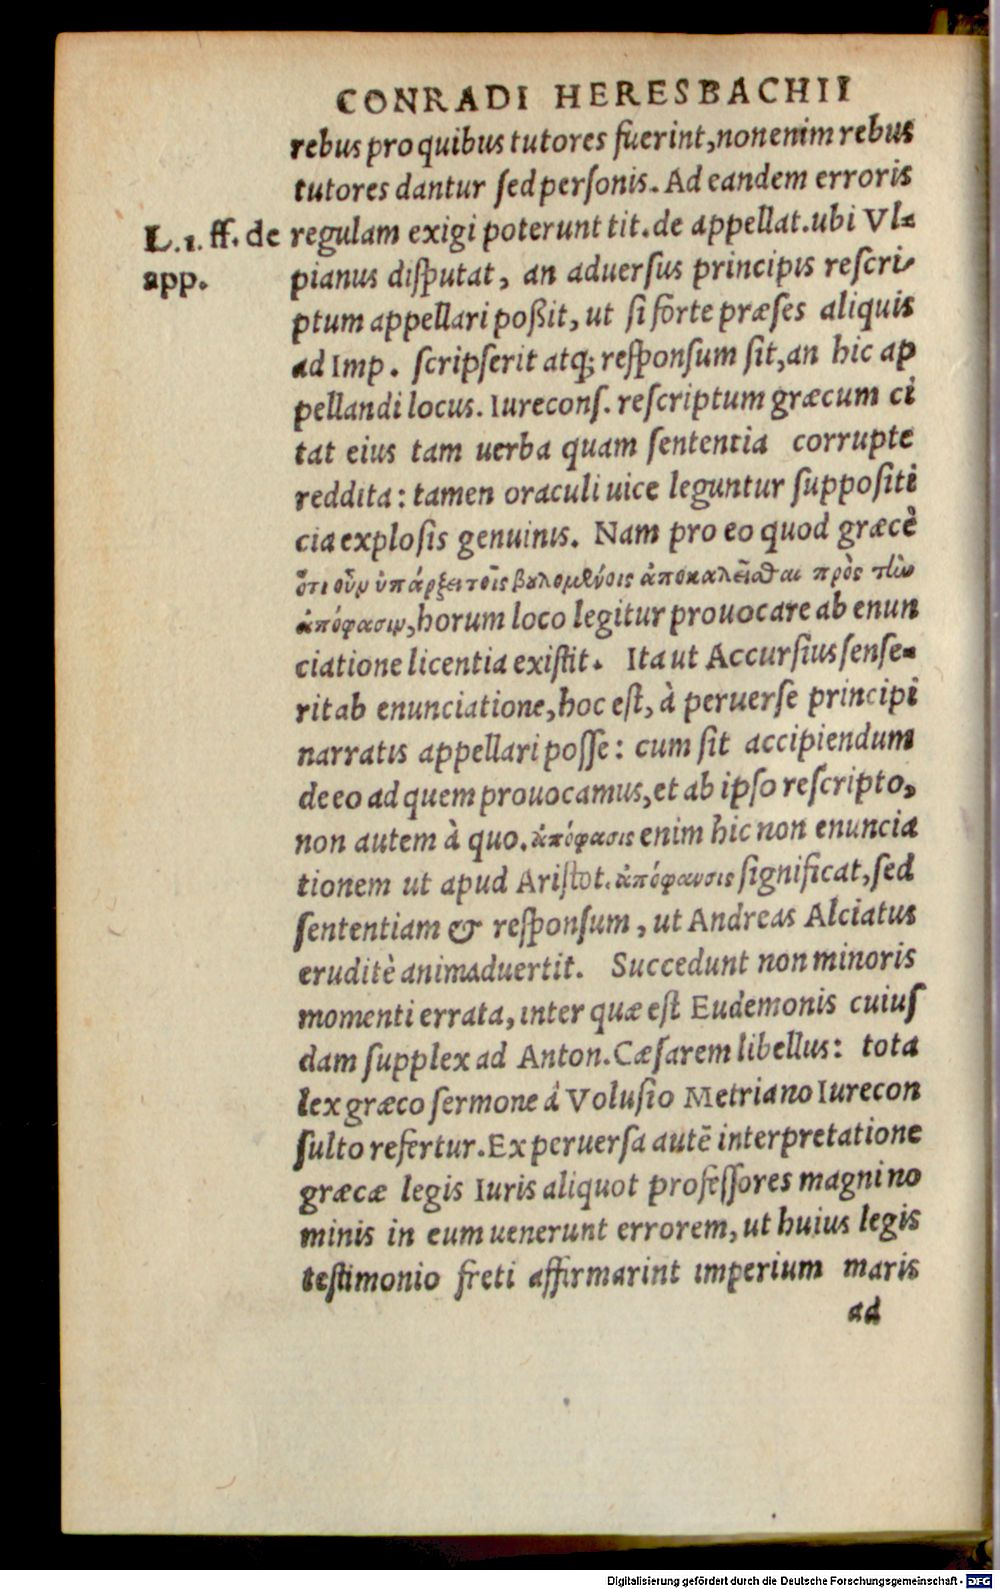 CONRADI HERESBACHII
rebus pro quibus tutores fuerint, non enim rebus
tutores dantur sed personis. Ad eandem erroris
L.1. ff. de
app.
regulam exigi poterunt tit. de appellat. ubi Vl-
pianus disputat, an aduersus principis rescri-
ptum appellari poßit, ut si forte præses aliquis
ad Imp. scripserit atq; responsum sit, an hic ap
pellandi locus. Iurecons. rescriptum græcum ci
tat eius tam uerba quam sententia corrupte
reddita: tamen oraculi uice leguntur supposití
cia explosis genuinis. Nam pro eo quod græcè
ὅτι οὖν ὑπάρξει τοῖς βουλομένοις ἀποκαλεῖσθαι πρὸς τὴν
ἀπόφασιν, horum loco legitur prouocare ab enun
ciatione licentia existit. Ita ut Accursius sense-
rit ab enunciatione, hoc est, à peruerse principi
narratis appellari posse: cum sit accipiendum
de eo ad quem prouocamus, et ab ipso rescripto,
non autem à quo. ἀπόφασις enim hic non enuncia
tionem ut apud Aristot. ἀπόφανσις significat, sed
sententiam & responsum, ut Andreas Alciatus
eruditè animaduertit. Succedunt non minoris
momenti errata, inter quæ est Eudemonis cuius
dam supplex ad Anton. Cæsarem libellus: tota
lex græco sermone á Volusio Metriano Iurecon
sulto refertur. Ex peruersa autē interpretatione
græcæ legis Iuris aliquot professores magni no
minis in eum uenerunt errorem, ut huius legis
testimonio freti affirmarint imperium maris
ad
Digitalisierung gefördert durch die Deutsche Forschungsgemeinschaft - DFG